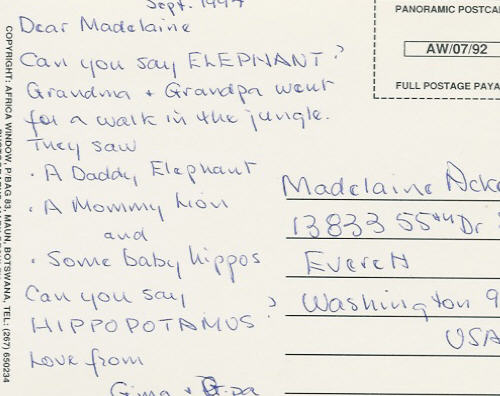 Sept. 1997
Dear Madelaine
Can you say ELEPHANT?
Grandma + Grandpa went
for a walk in the jungle.
They saw
· A Daddy Elephant
· A Mommy Lion
and
· Some baby hippos
Can you say
HIPPOPOTAMUS?
Love from
Gma + G.pa
PANORAMIC POSTCA
AW/07/92
FULL POSTAGE PAYA
Madelaine Acke
13833 55th Dr
Everett
Washington 9
USA
COPYRIGHT: AFRICA WINDOW, P/BAG 83, MAUN, BOTSWANA, TEL: (267) 650234